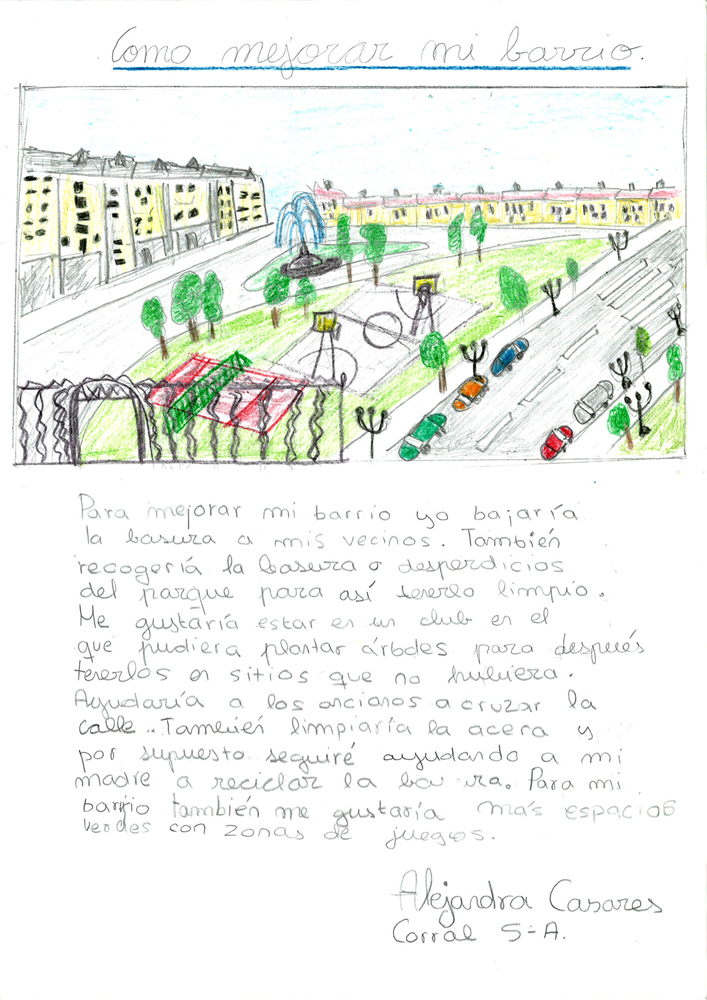 Como mejorar mi barrio.
Para mejorar mi barrio yo bajaría
la basura a mis vecinos. También
recogería la basura o desperdicios
del parque para así tenerlo limpio.
Me gustaría estar en un club en el
que pudiera plantar árboles para después
tenerlos en sitios que no hubiera.
Ayudaría a los ancianos a cruzar la
calle. También limpiaría la acera y
por supuesto seguiré ayudando a mi
madre a reciclar la ba ura. Para mi
barrio también me gustaría más espacios
verdes con zonas de juegos.
Alejandra Casares
Corral 5-A.